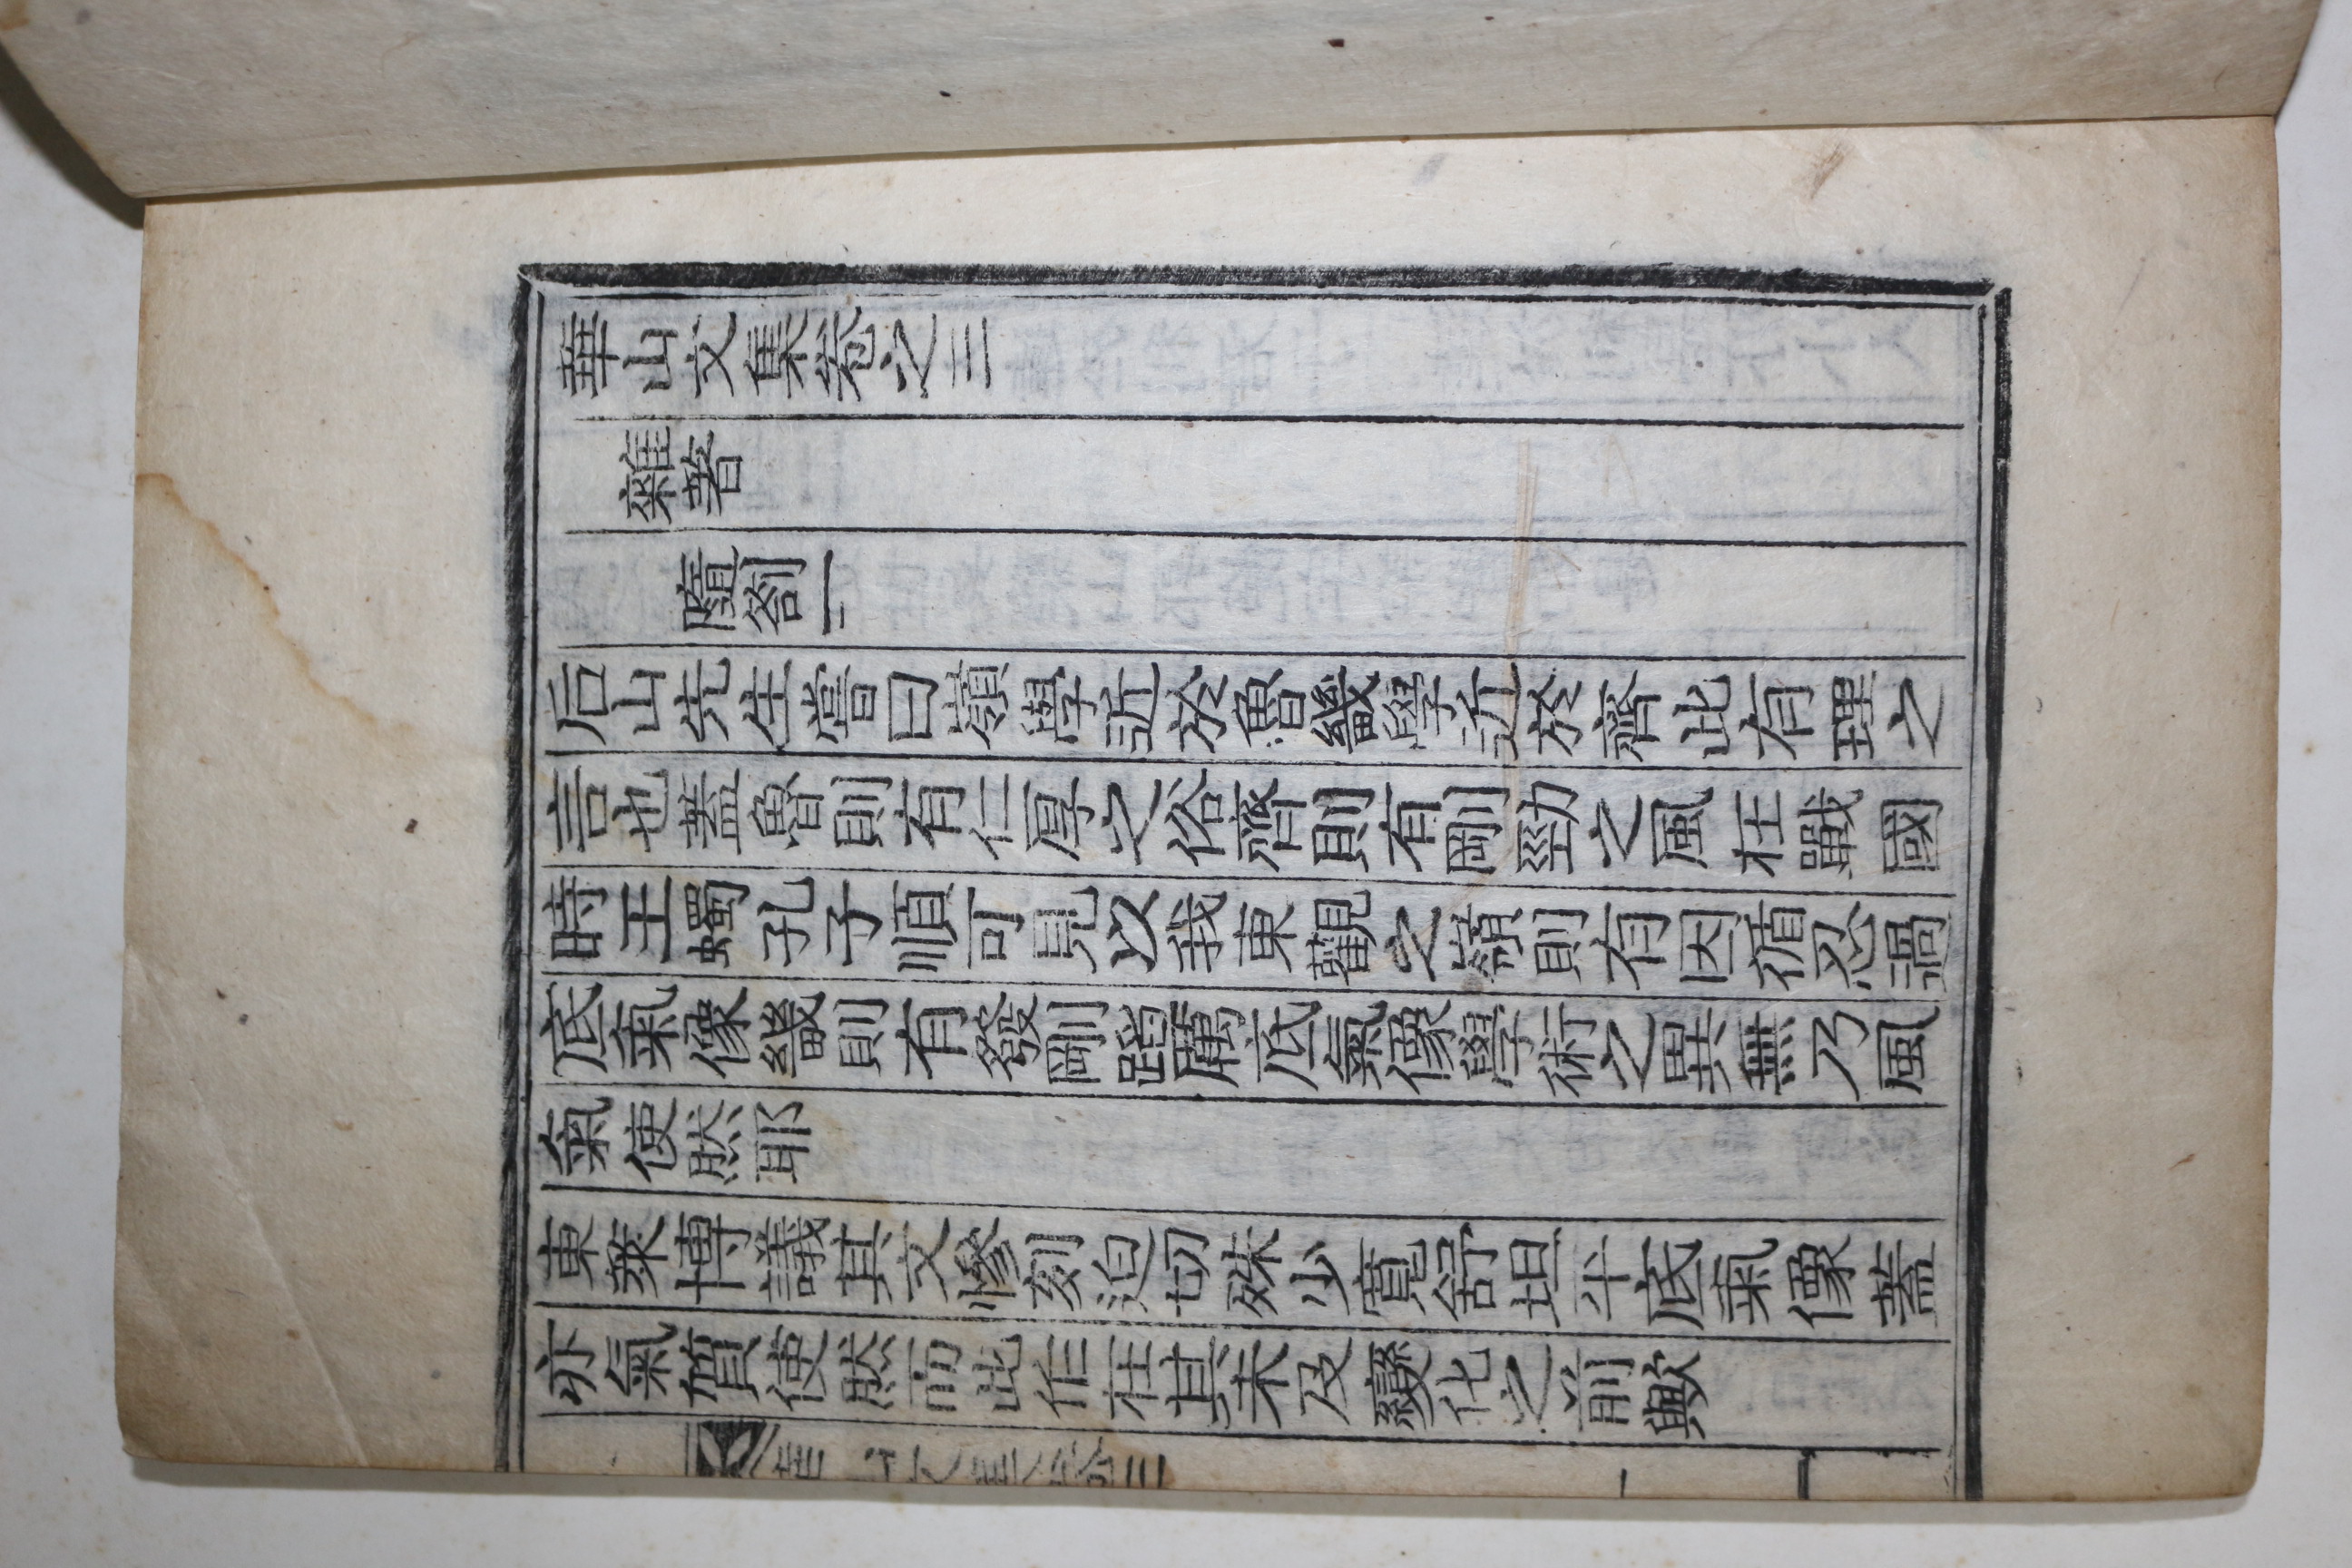 華山文集卷之三
雜著
隨劄一
后山先生嘗曰嶺學近於魯畿學近於齊此有理之
言也蓋魯則有仁厚之俗齊則有剛勁之風在戰國
時王蠋孔子順可見以我東觀之嶺則有因循忍過
底氣像畿則有發剛蹈厲底氣像學術之異無乃風
氣使然耶
東萊博議其文慘刻迫切殊少寬舒坦平底氣像蓋
亦氣質使然而此作在其未及變化之前歟
華山文集卷三
一